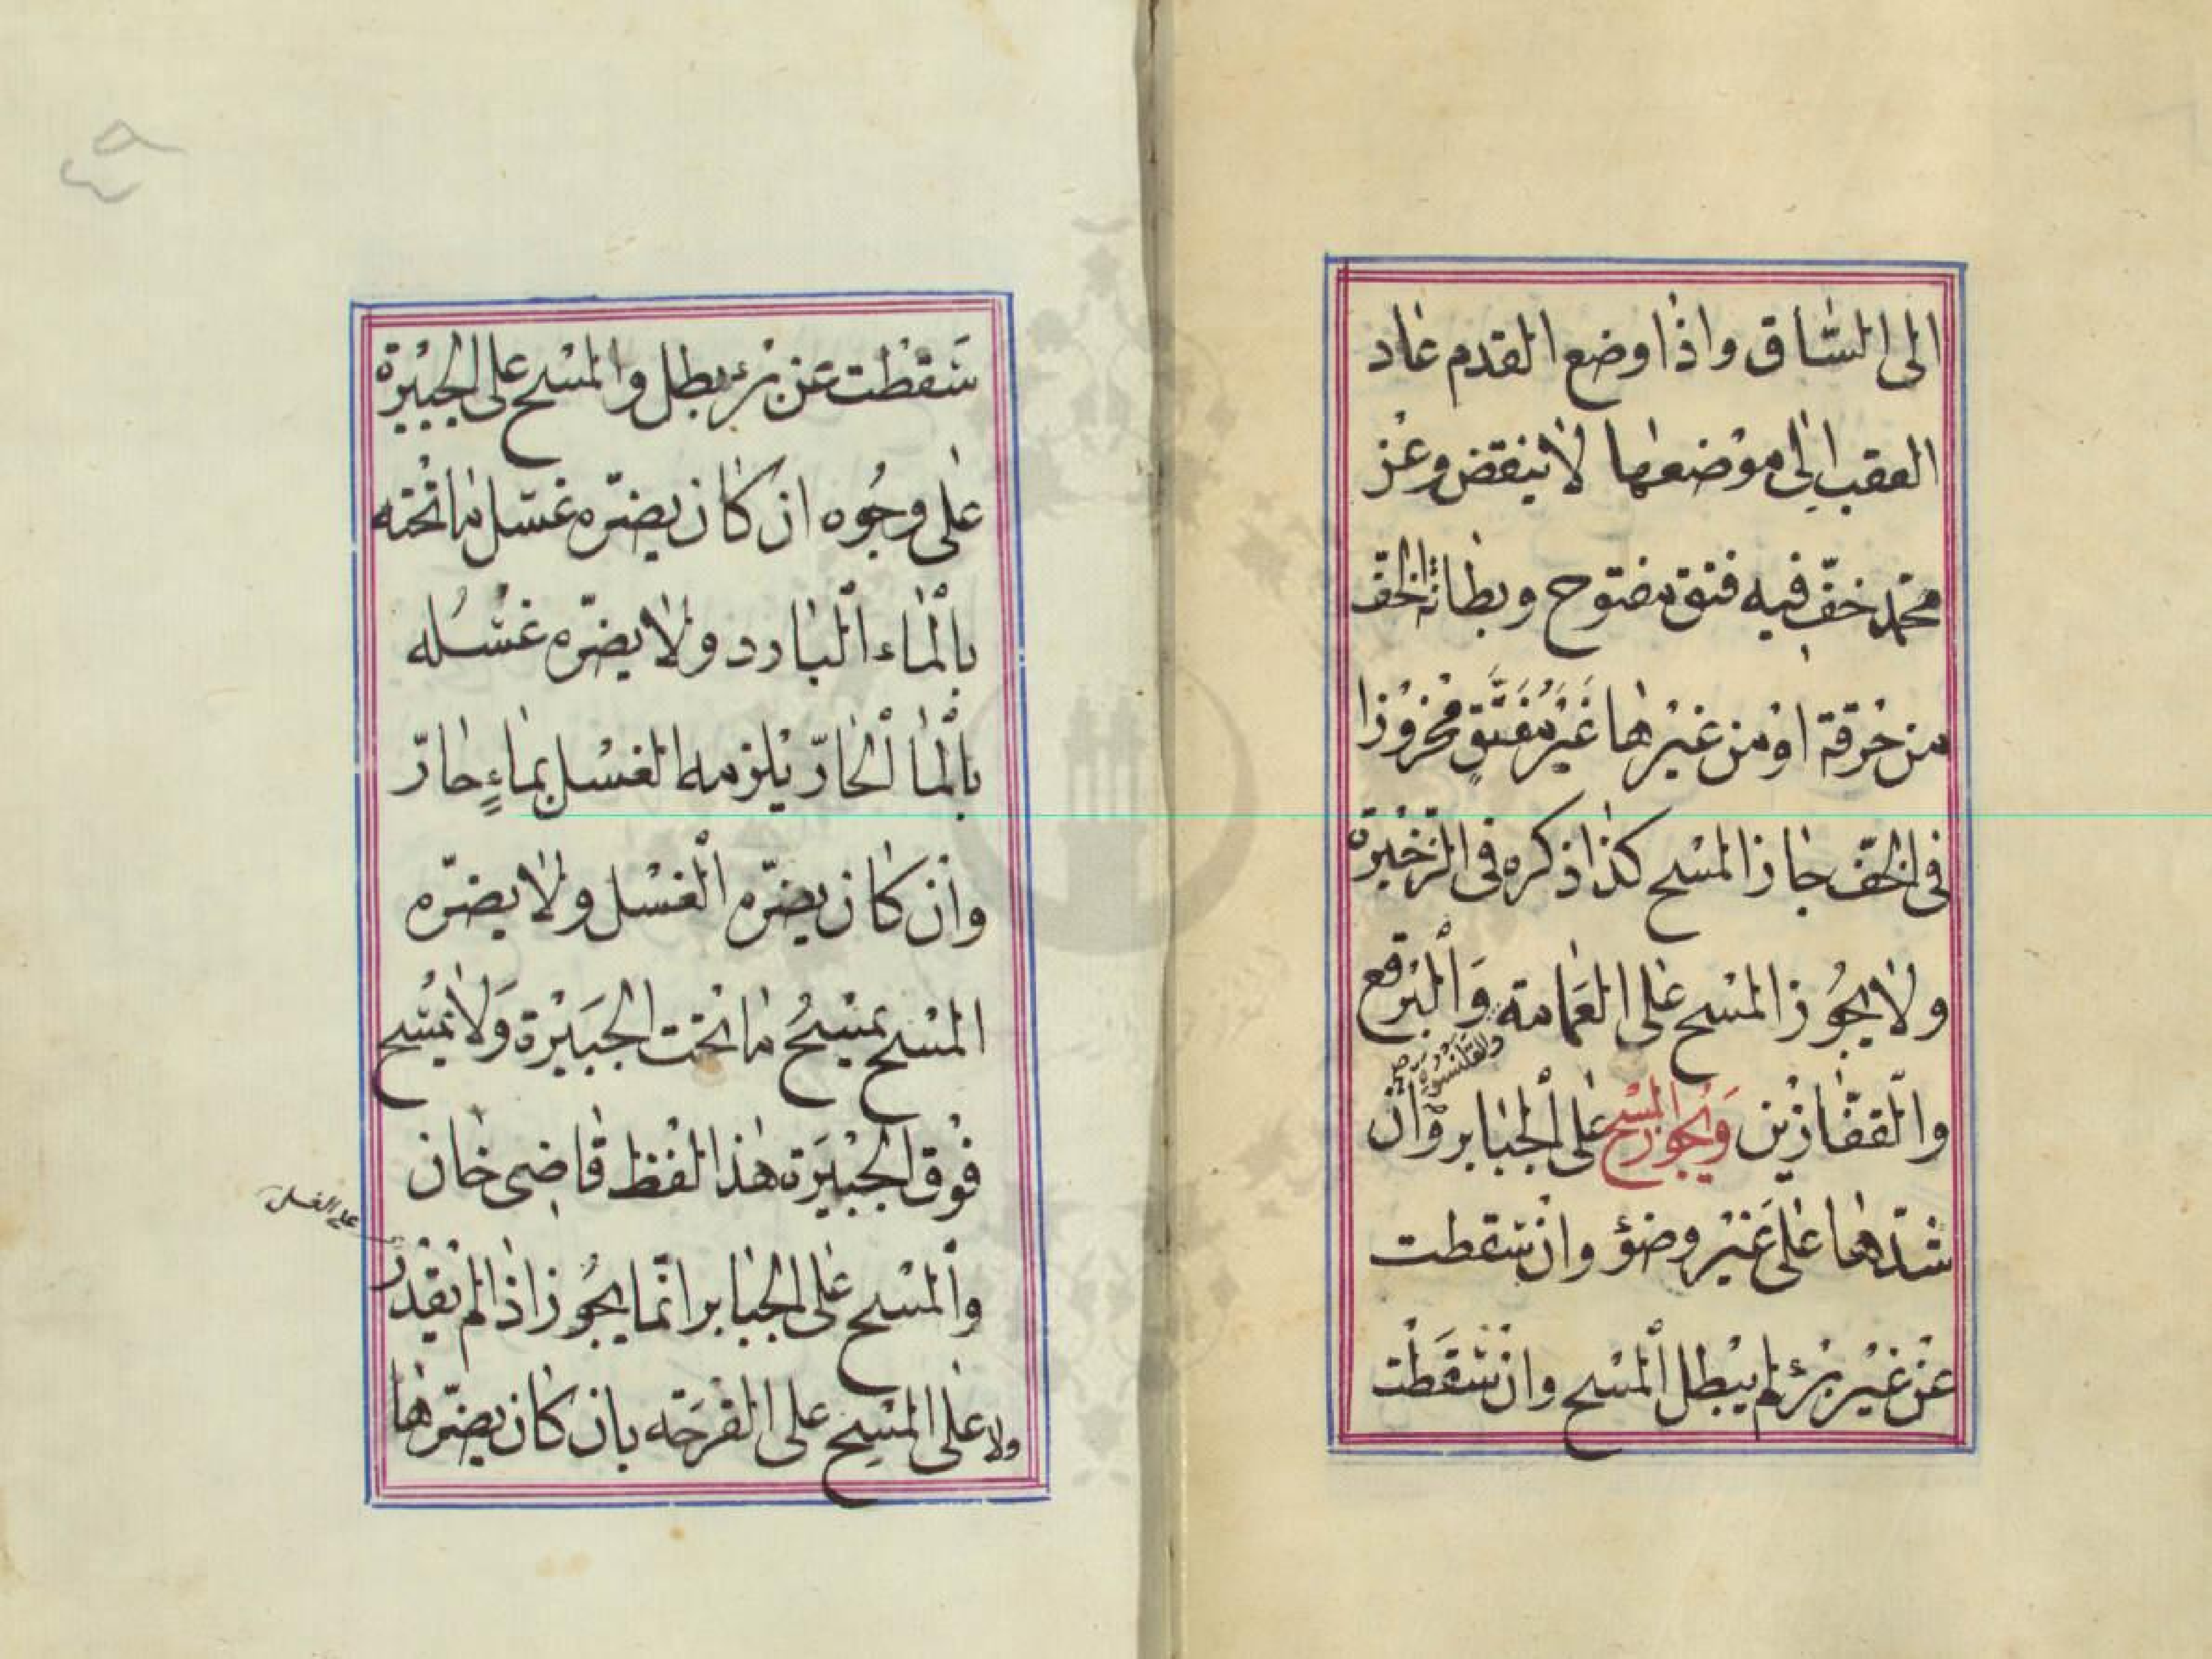 الى السّاق واذا وضع القدم عاد
العقب الى موضعها لا ينقض وعن
محمد خفّ فيه فتق مفتوح وبطانة الخفّ
من خرقة اوْ من غيْرها غَيْرُ مُفَتَّقٍ مخْروْزا
فى الخفّ جاز المسْح كذا ذكره فى الذخيْرة
ولا يجُوز المسْح على العمَامة وَالْبرْقع
والقلنسُوَة صح
والْقفّازيْن وَيجوز المسْح على الْجبَابر وَّانْ
شدّها على غَيْر وضؤ وانْ سَقطت
عنْ غيْر برْء لم يبْطل الْمسْح وانْ سَقَطَتْ
سَقطت عنْ برْء بطل والمسْح على الجَبيْرة
على وجُوه ان كان يضرّه غسل ما تحْته
بالْماء الْبارد ولا يضرّه غسْله
بالْما الْحارّ يلْزمه الغسْل بماءٍ حارّ
وانْ كان يضرّه الْغسْل ولا يضرّه
المسْح يمْسَحُ ما تحْت الجَبَيْرة وَلا يمْسَح
فوْق الجَبْيَرَة هذا لفْظ قاضى خان
والْمسْح على الجبَابر انّما يجُوز اذا لم يقْدرْ
على الغسل
ولا على المسْح على القرْحَة بان كان يضرّها